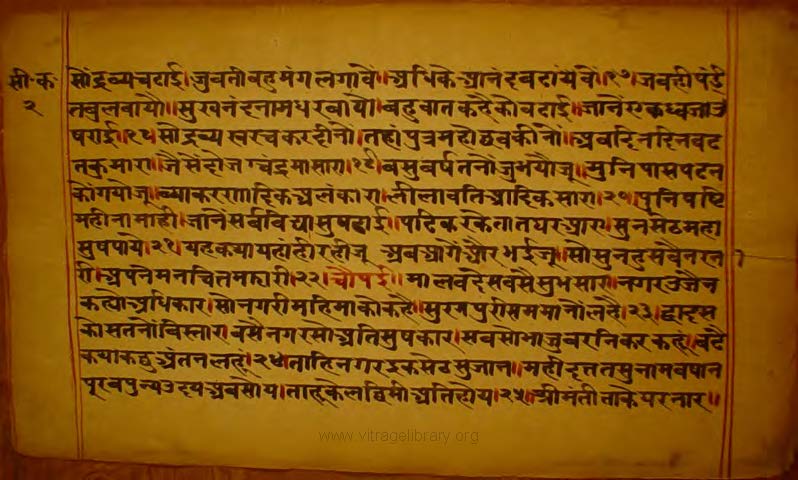 सी॰क॰
२
सोद्रव्यचटाई।जुवतीबहुमंगलगावें।अधिकेआनंदबटांयवें।१७।जबहीपंडी
तबुलवायौ।सुखनंदनामधरवायो।बहुबातकहैकोबटाई।जानेएकध्वजाउ
षराई।१५।सोद्रव्यखरचकरदीनो।तहांपुत्रमहोछवकीनो।अबदिनदिनबट
तकुमारा।जैसेंदोजचंद्रमासारा।१६।बसुबर्षतनोंजुभयौजू।मुनिपासपटन
कोंगयोजू।व्याकरणादिकअलंकारा।लीलावतिआदिकसारा।२०।पुनिषष्टि
महीनामाही।जानिसर्बविद्यासुपढाई।पटिकरकेतातघरआए।सुनसेठमहा
सुषपाये।२१।यहकथायहांहीरहीजू।अबआगेंओरभईजू।सोसुनहुसबैनरना
री।अपनेमनचितमझारी।२२।चौपई।मालवदेसबसैसुभसार।नगरउजैन
कह्योअधिकार।सानगरीमहिमाकोकहै।सुरगपुरीसममानोंलहै।२३।द्वादस
कोसतनोंविस्तार।बसैनगरसोअतिसुषकार।सबसोभाजुबरनिकरकहू।बटै
कथाकछुअंतनलहू।२४।ताहिनगरइकसेठसुजान।महीदत्ततसुनामबषान
पूरबपुन्यउदयअबसोय।ताहूकेलछिमीअतिहोय।२५।श्रीमंतीताकेघरनार॥
www.vitragelibrary.org